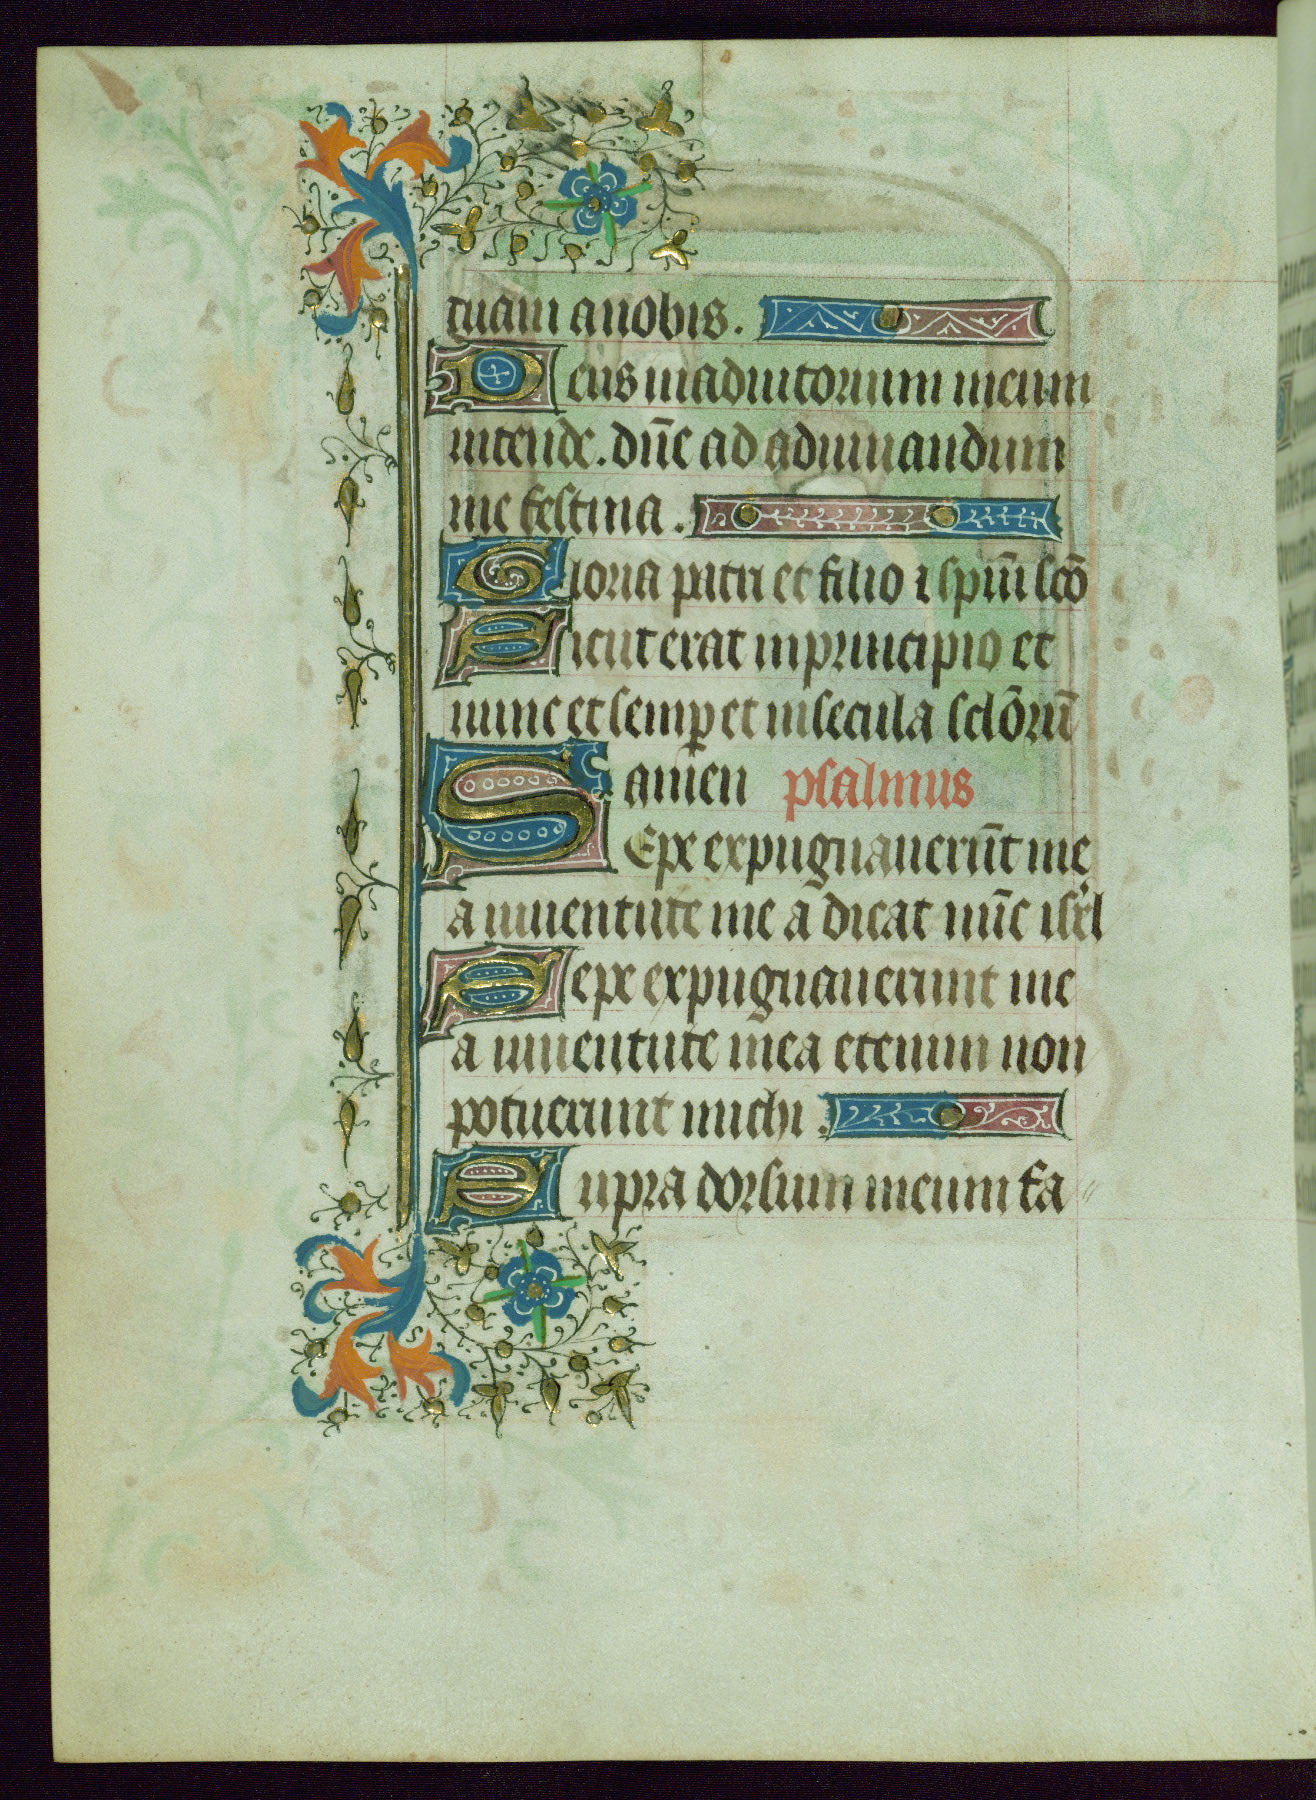 tuam a nobis.
Deus in adiutorium meum
intende. dñe ad adiuuandum
me festina.
Gloria patri et filio ⁊ spiũi scõ
Sicut erat in principio et
nunc et semꝑ et in secula sclõrũ
amen psalmus
Sepe expugnauerũt me
a iuuentute me ā dicat nũc isrl
Sepe expugnauerunt me
a iuuentute mea etenim non
potuerunt michi.
Supra dorsum meum fa